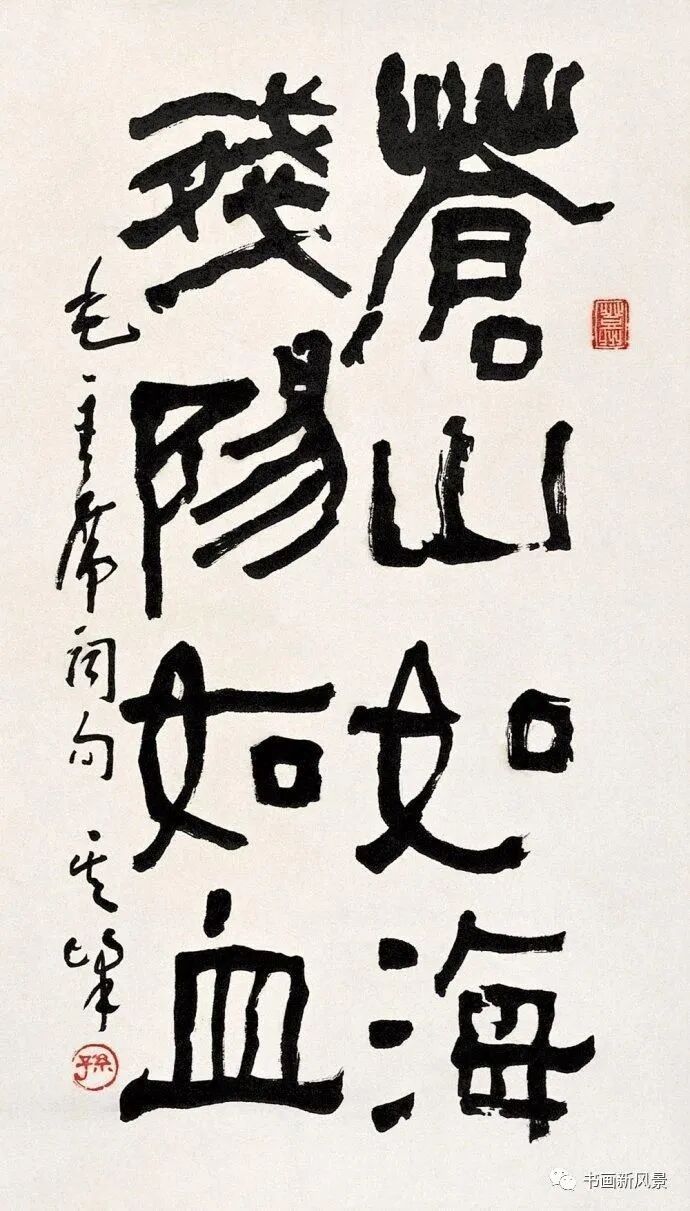 蒼山如海
殘陽如血
毛主席词句 其峰
孫
书画新风景